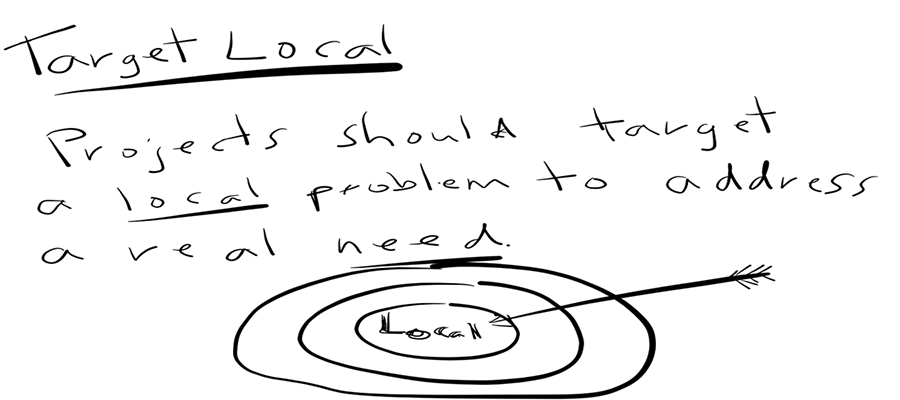 Target Local
Projects should target
a local problem to address
a real need.
Local